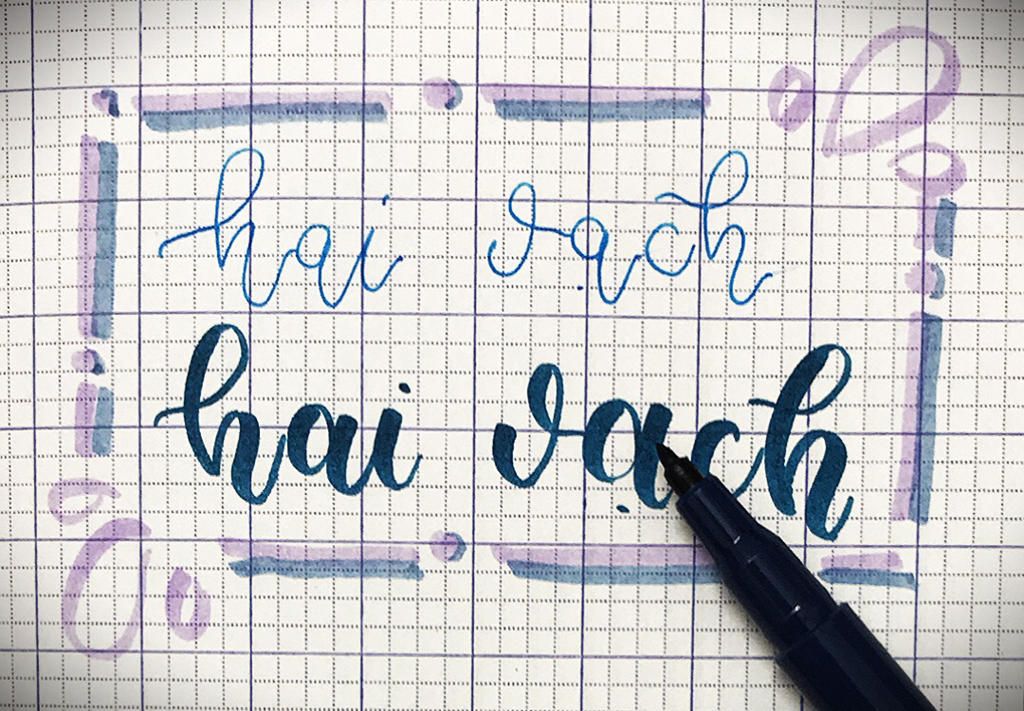 hai vạch
hai vạch